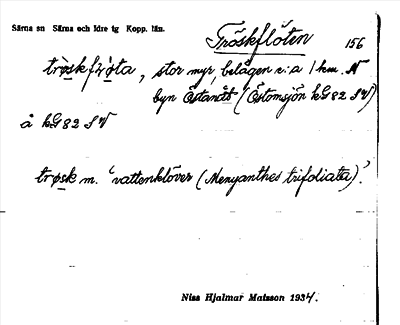 Särna sn Särna och Idre tg Kopp. län.
Tröskflöten 156
trøskfłøta, stor myr, belägen c:a 1 km. N
byn Östanåt (Östomsjön kG 82 S V)
å kG 82 S V
trøsk m. 'vattenklöver (Menyanthes trifoliata)'.
Niss Hjalmar Matsson 1934.